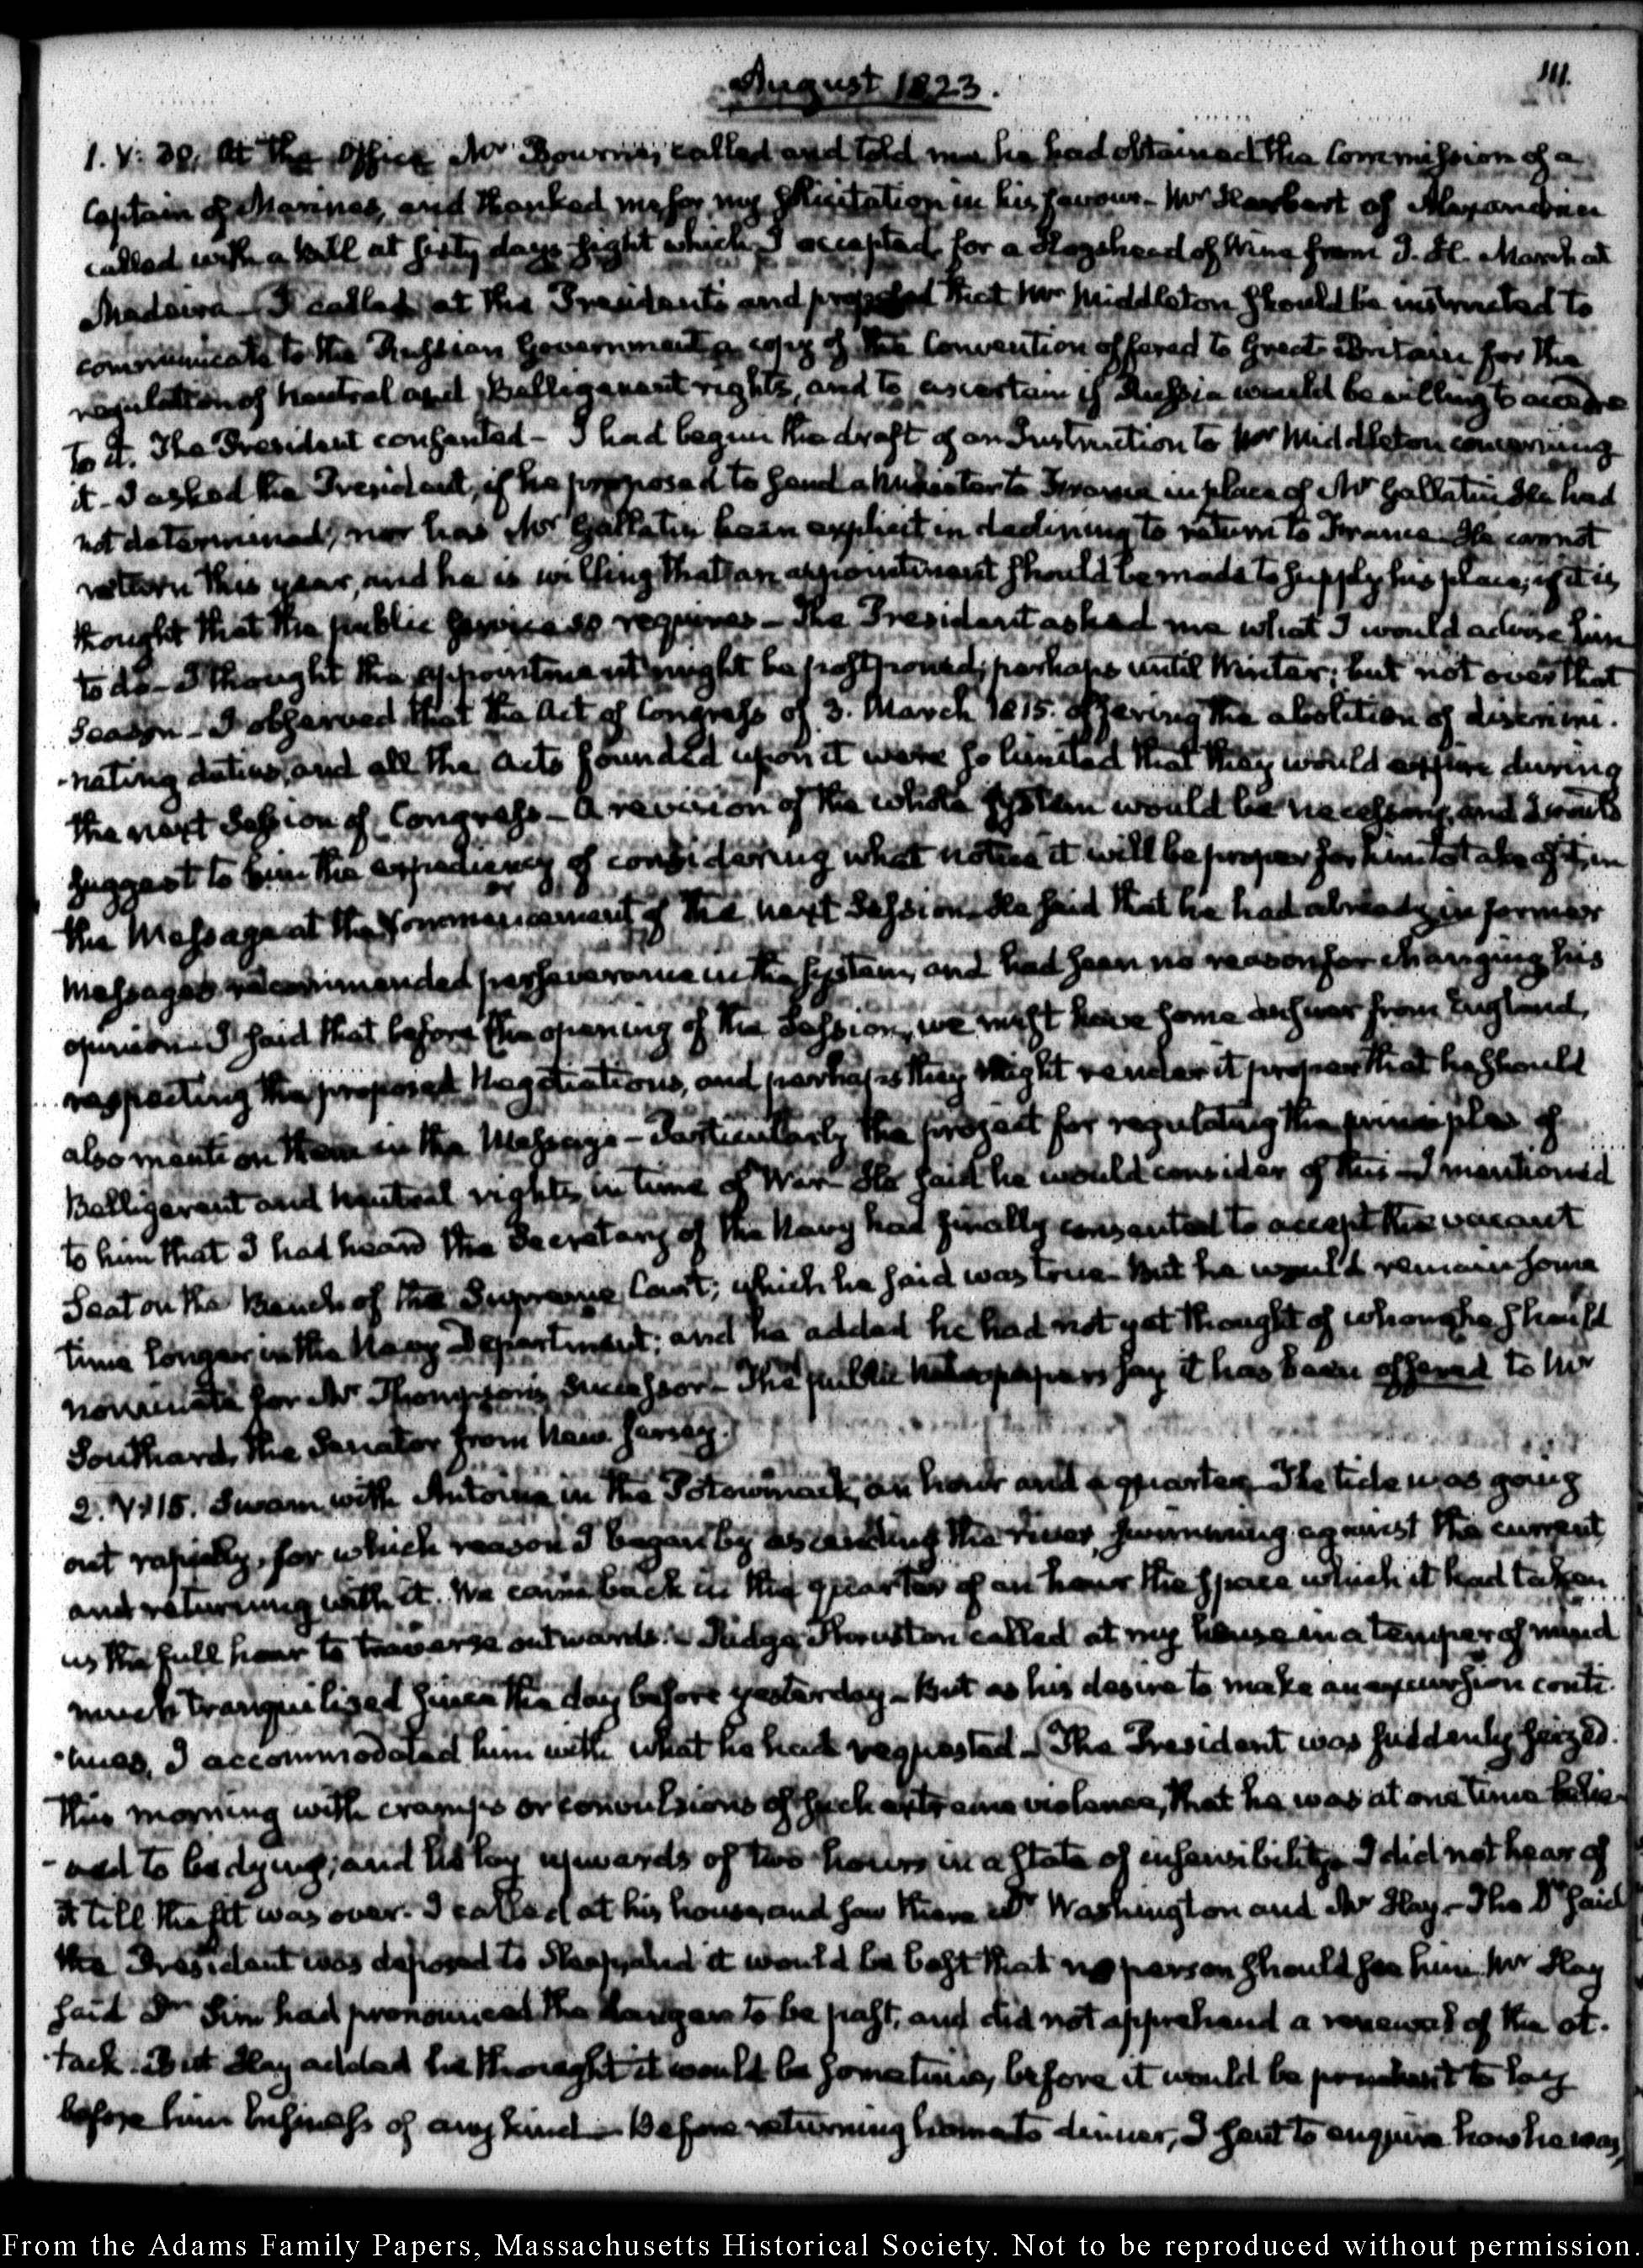 August 1823.
111.
1. V: 30. At the Office Mr Bourne, called and told me he had obtained the Commission of a
Captain of Marines, and thanked me for my solicitation in his favour - Mr Herbert of Alexandria
called with a bill at sixty days sight which I accepted, for a Hogshead of Wine from J. H. March at
Madeira - I called at the President's and proposed that Mr Middleton should be instructed to
communicate to the Russian Government a copy of the Convention offered to Great-Britain for the
regulation of Neutral and Belligerent rights, and to ascertain if Russia would be willing to accede
to it. The President consented - I had begun the draft of an Instruction to Mr Middleton concerning
it - I asked the President, if he proposed to send a Minister to France in place of Mr Gallatin. He had
not determined; nor has Mr Gallatin been explicit in declining to return to France. He cannot
return this year, and he is willing that an appointment should be made to supply his place, if it is
thought that the public service so requires - The President asked me what I would advise him
to do - I thought the appointment might be postponed, perhaps until Winter; but not over that
Season - I observed that the Act of Congress of 3. March 1815. offering the abolition of discrimi-
-nating duties, and all the Acts founded upon it were so limited that they would expire during
the next Session of Congress - A revision of the whole system would be necessary, and I would
suggest to him the expediency of considering what notice it will be proper for him to take of it, in
the Message at the Commencement of the next Session. He said that he had already in former
Messages recommended perseverance in the system, and had seen no reason for changing his
opinion - I said that before the opening of the Session, we must have some answer from England,
respecting the proposed Negotiations, and perhaps they might render it proper that he should
also mention them in the Message - Particularly the project for regulating the principles of
Belligerent and Neutral rights in time of War. He said he would consider of this - I mentioned
to him that I had heard the Secretary of the Navy had finally consented to accept the vacant
Seat on the Bench of the Supreme Court; which he said was true - But he would remain some
time longer in the Navy Department; and he added he had not yet thought of whom he should
nominate for Mr Thompson's successor - The public Newspapers say it has been offered to Mr
Southard, the Senator from New-Jersey.
2. V: 15. Swam with Antoine in the Potowmack, an hour and a quarter. The tide was going
out rapidly, for which reason I began by ascending the river, swimming against the current,
and returning with it. We came back in the quarter of an hour the space which it had taken
us the full hour to traverse outwards. - Judge Thruston called at my house in a temper of mind
much tranquilized since the day before yesterday - But as his desire to make an excursion conti-
-nues, I accommodated him with what he had requested - The President was suddenly seized
this morning with cramps or convulsions of such extreme violence, that he was at one time belie-
-ved to be dying; and he lay upwards of two hours in a state of insensibility. I did not hear of
it till the fit was over. I called at his house, and saw there Dr Washington and Mr Hay - The Dr said
the President was disposed to sleep, and it would be best that no person should see him. Mr Hay
said Dr Sim had pronounced the danger to be past, and did not apprehend a renewal of the at-
-tack. But Hay added he thought it would be sometime, before it would be prudent to lay
before him business of any kind - Before returning home to dinner, I sent to enquire how he was,
From the Adams Family Papers, Massachusetts Historical Society. Not to be reproduced without permission.